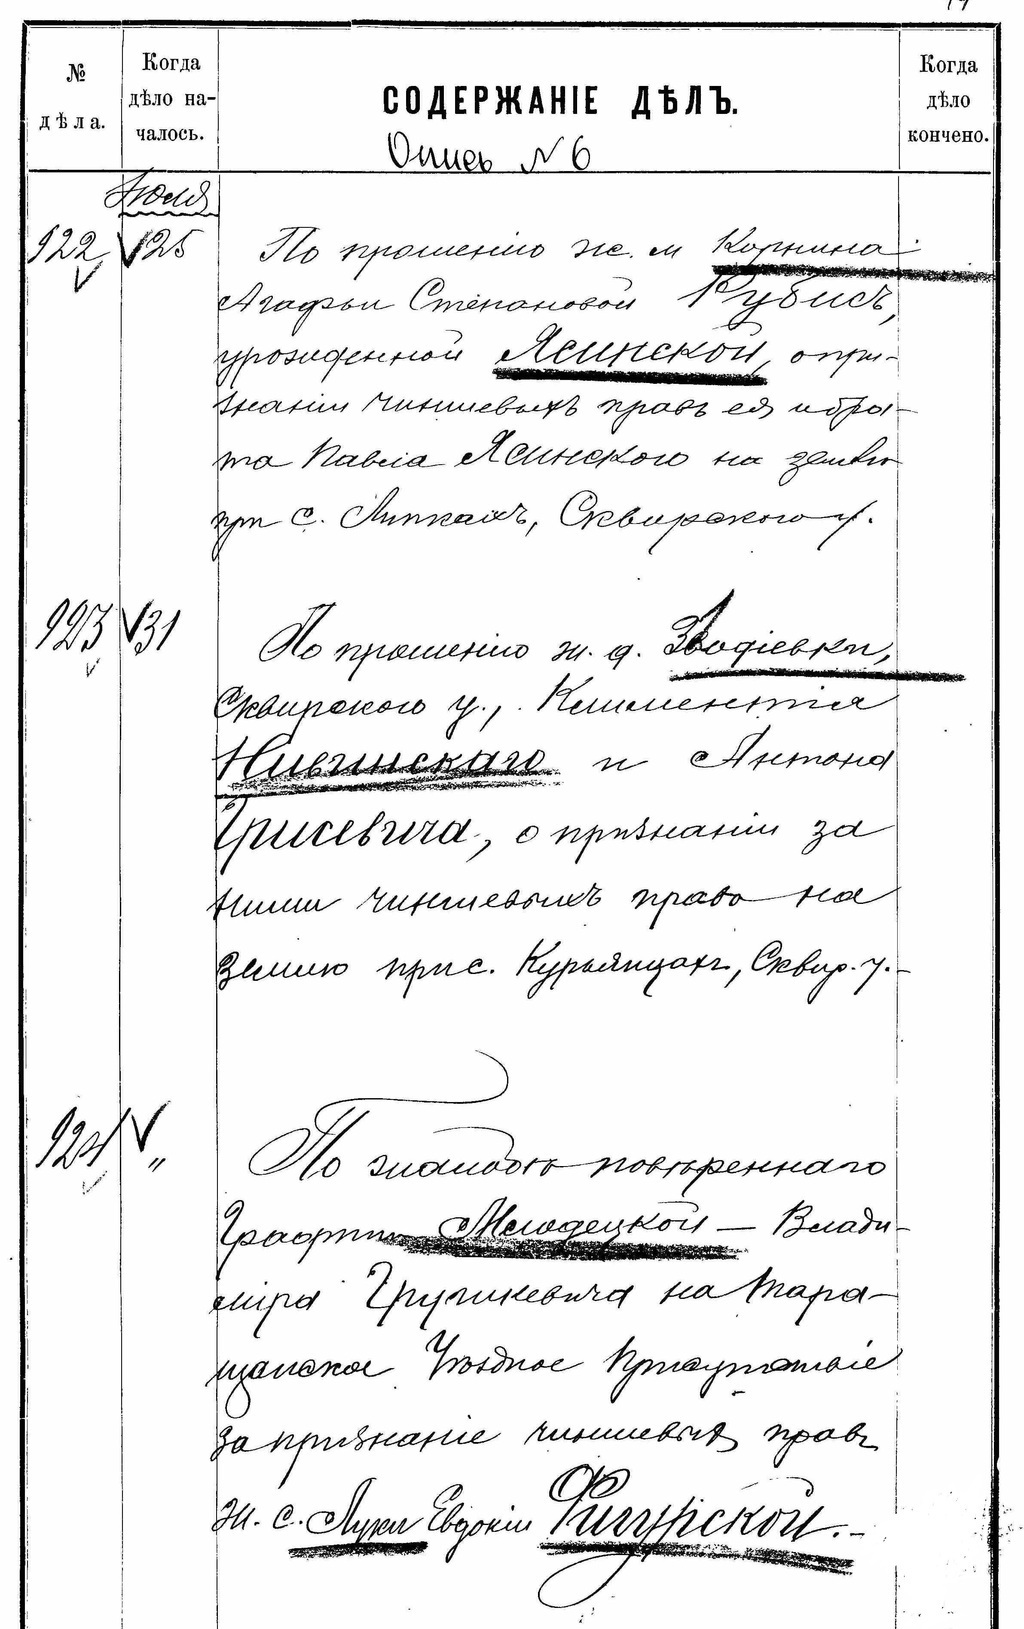 № дѣла.
Когда дѣло началось.
СОДЕРЖАНІЕ ДѢЛЪ.
Когда дѣло кончено.
Опись N 6
Июля
922 25 По прошенію ж. м Корнина
Агафьи Степановой Рубисъ,
урожденной Ясинской, о при-
знаніи чиншевыхъ правъ ея и бра-
та Павла Ясинскаго на землю
при с. Липкахъ, Сквирского у.
923 31 По прошенію ж. д.
Сквирского у., Климентія
и Антона
Грисевича, о признаніи за
ними чиншевыхъ право на
землю при с. Курьянцахъ, Сквир. у.-
924 „ По жалобѣ повѣреннаго
Графини Млодецкой — Влади-
міра Грушкевича на Тара-
щанское Уѣздное Присутствіе
за признаніе чиншевыхъ правъ
ж. с. Луки Евдокіи Фигурской.-